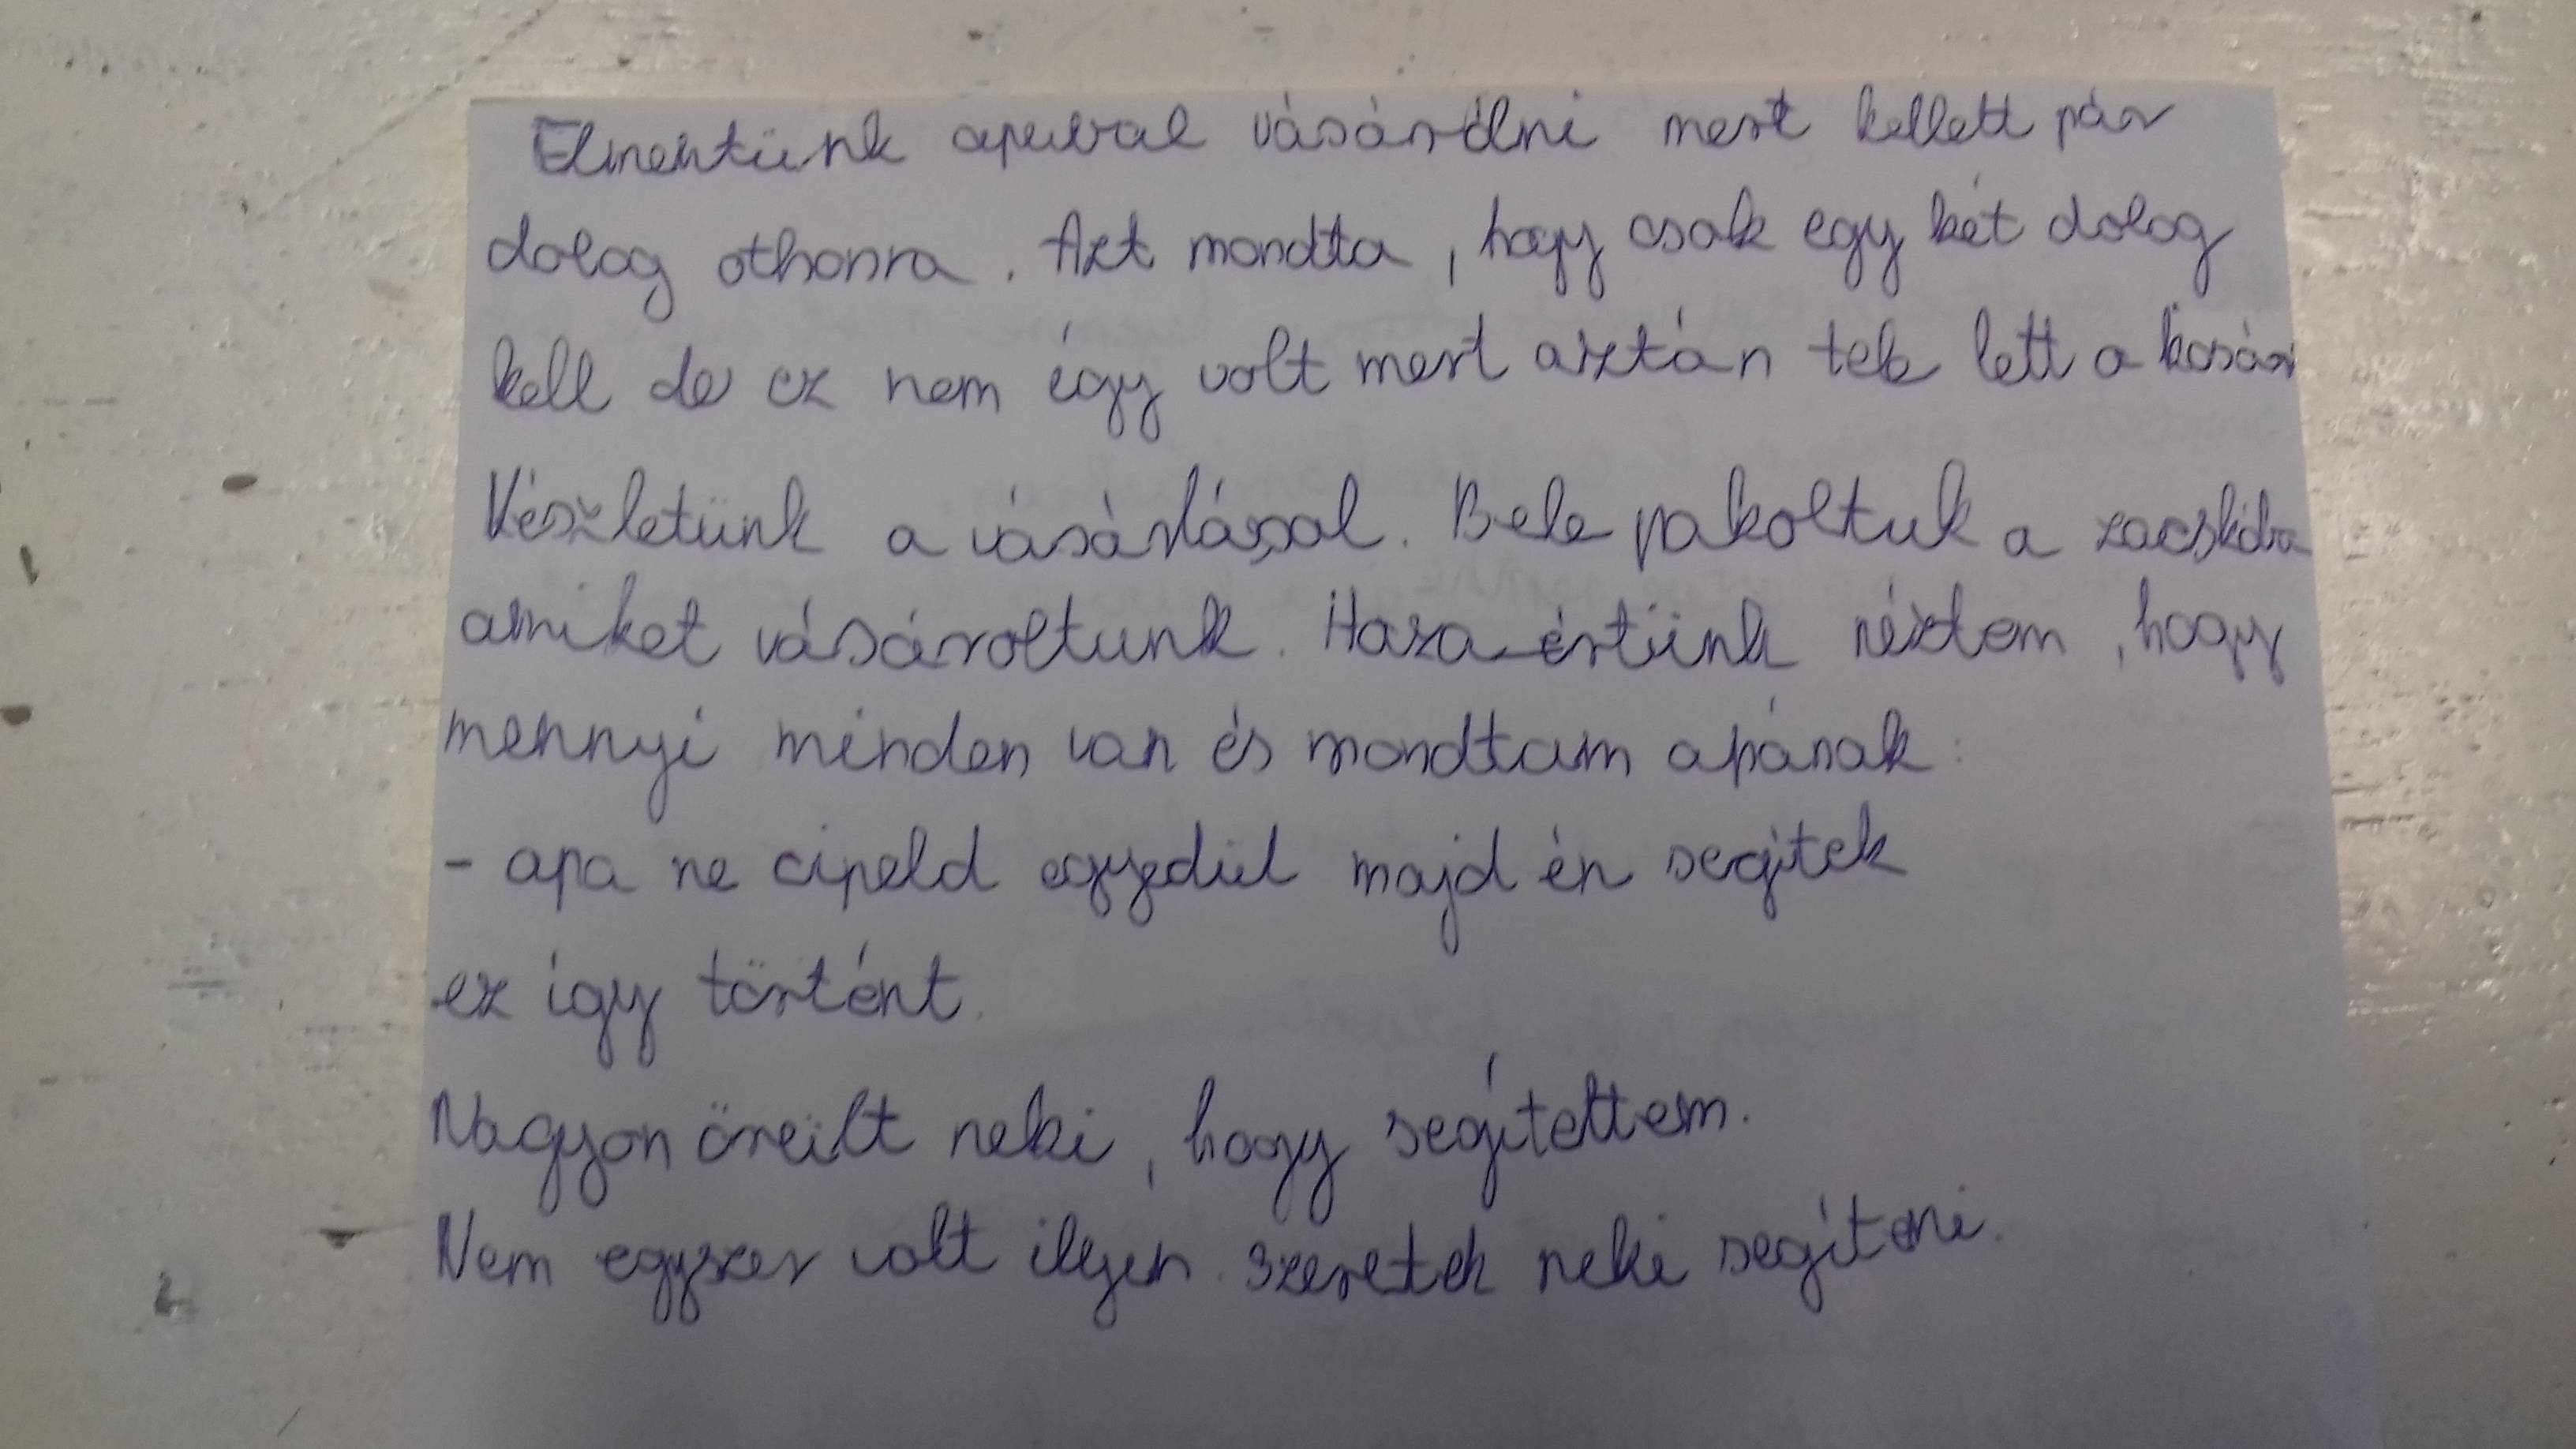 Elmentünk apuval vásárólni mert kellett pár
dolog othonra. Azt mondta, hogy csak egy két dolog
kell de ez nem égy volt mert aztán tele lett a kosár
Készletünk a vásárlással. Bele pakoltuk a zacskóba
amiket vásároltunk. Haza értünk néztem, hogy
mennyi minden van és mondtam apának:
- apa ne cipeld egyedül majd én segítek
ez így történt.
Nagyon örült neki, hogy segítettem.
Nem egyszer volt ilyen. szeretek neki segíteni.